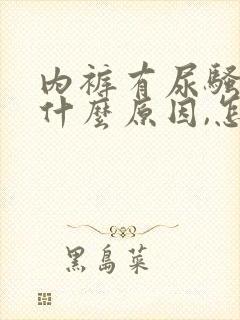 内裤有尿骚
什麼原因,怎
黑島菜